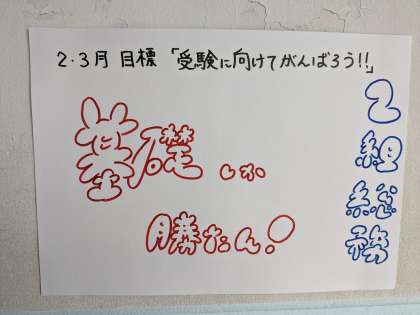 2・3月 目標 「受験に向けてがんばろう!!」
基礎 しか
勝たん!
2組総務